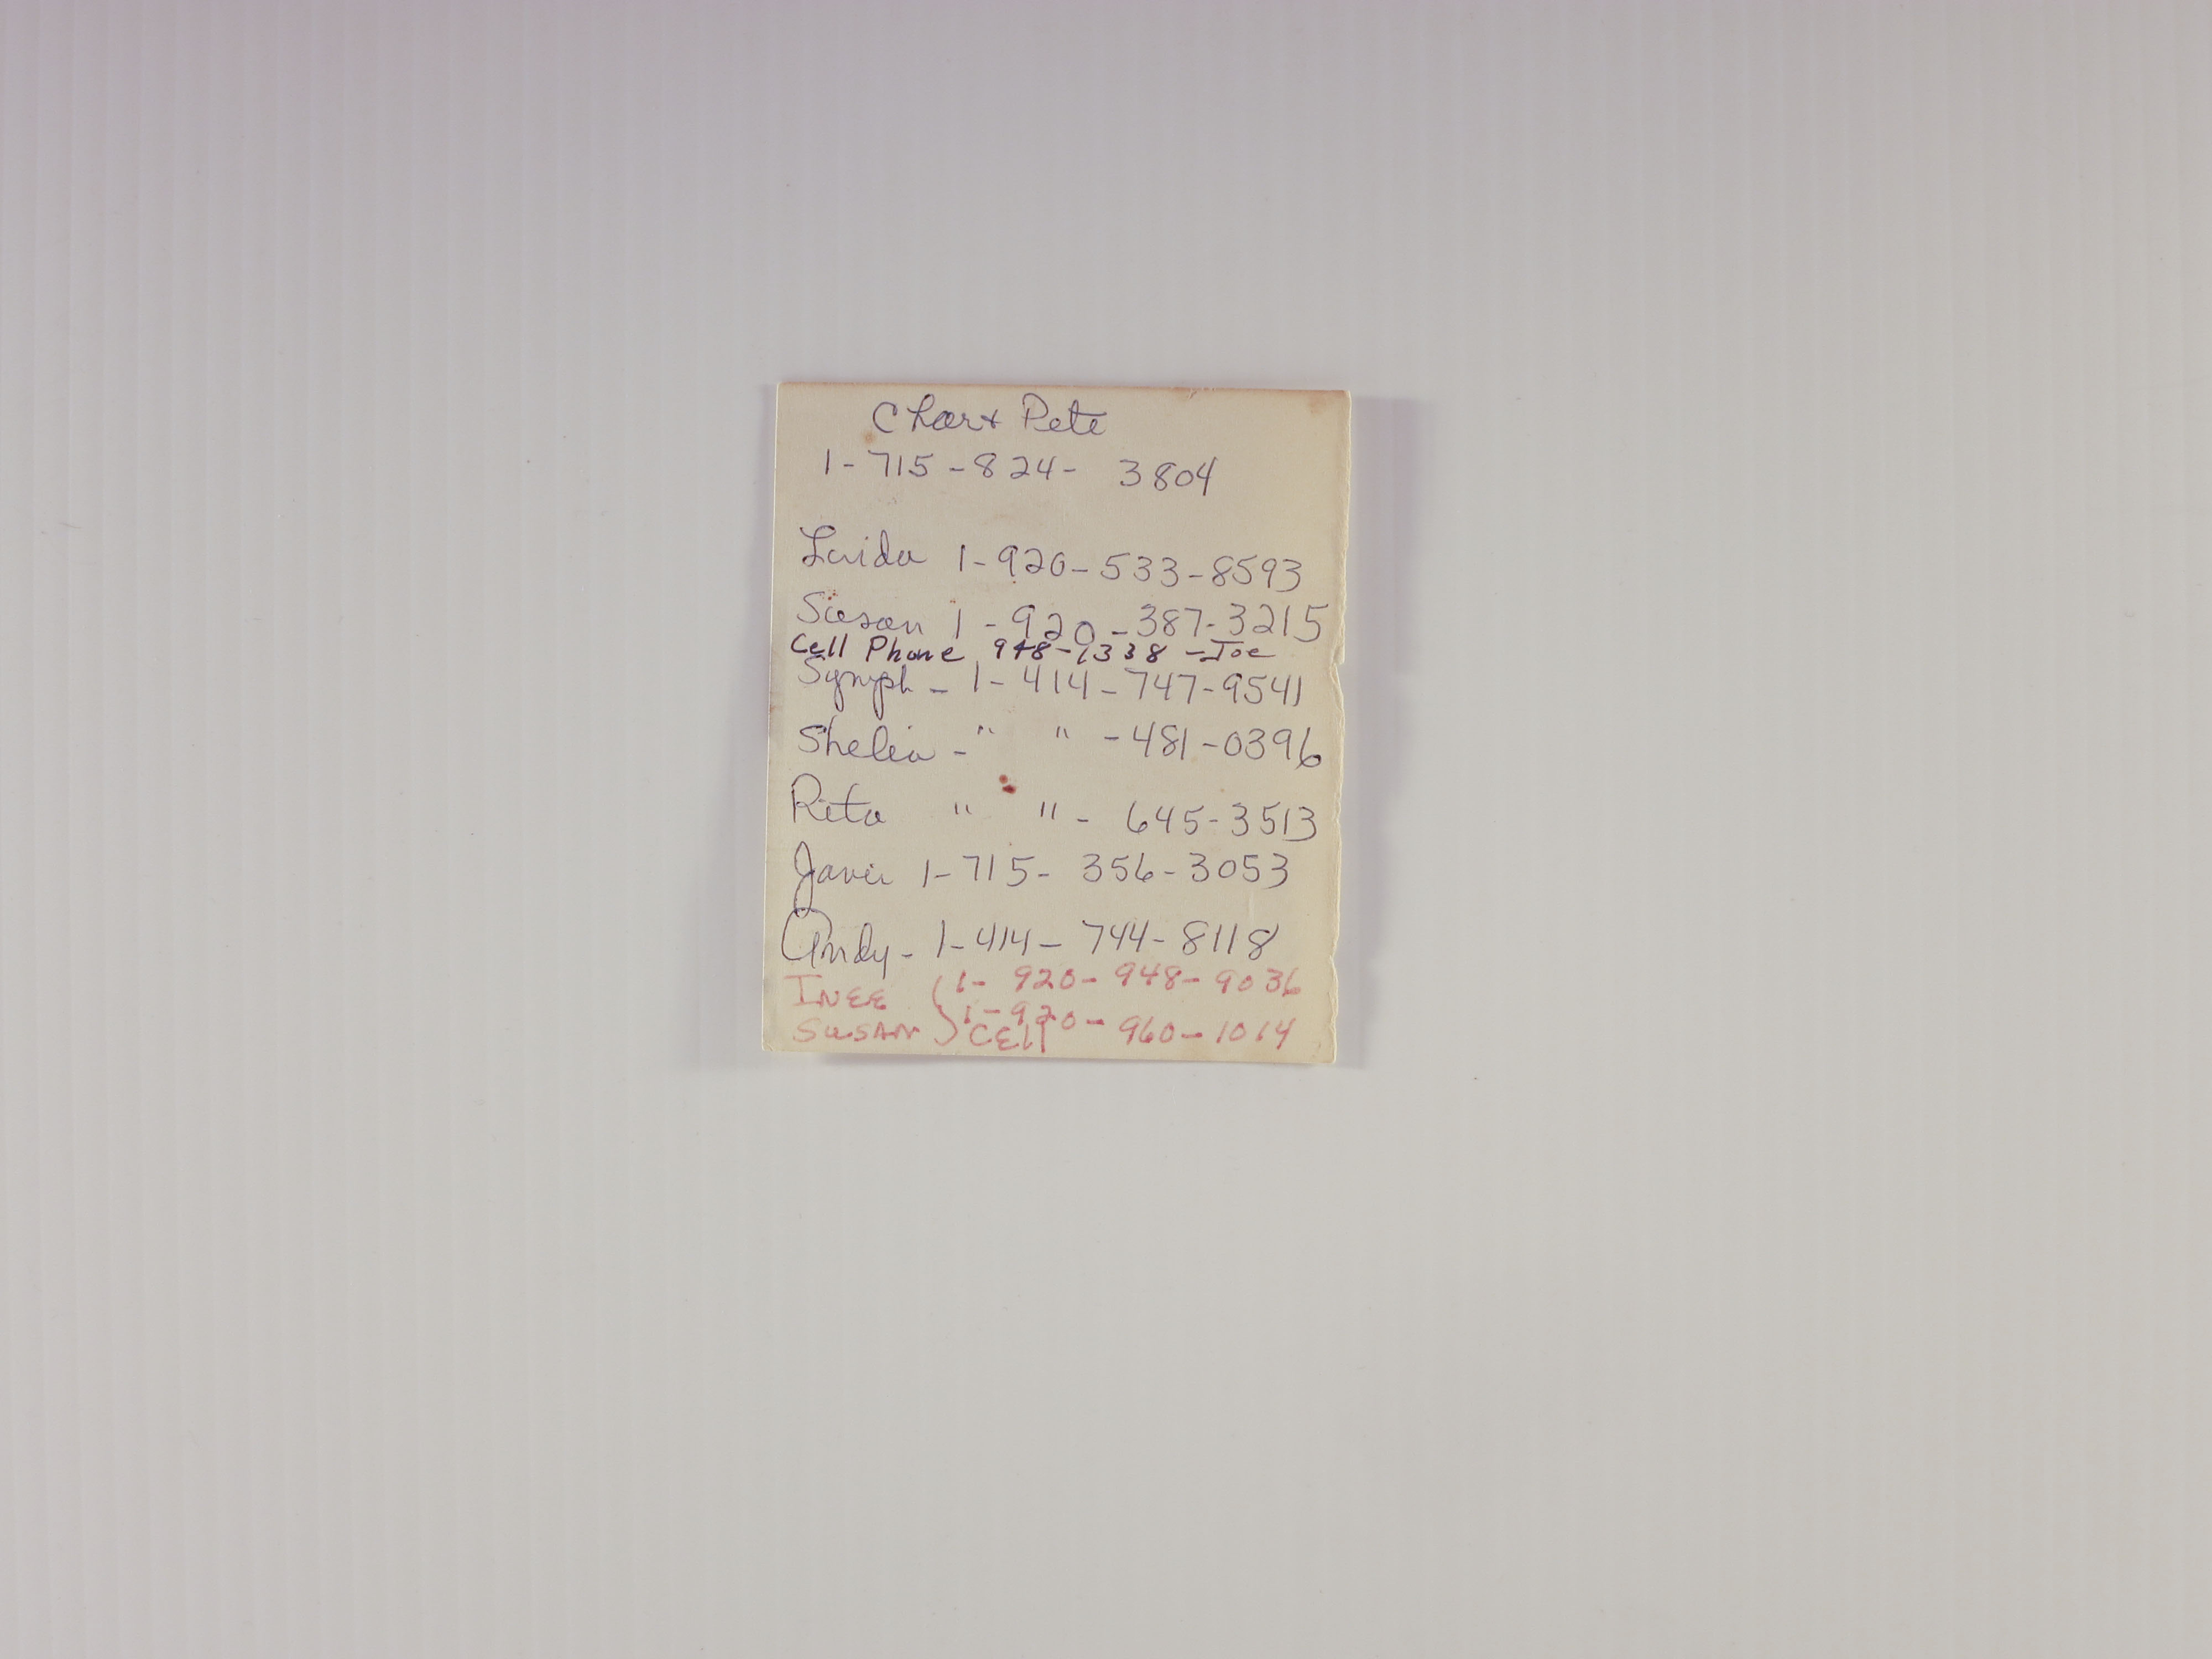 Char + Pete
1-715-824- 3804
Laida 1-920-533-8593
Susan 1-920-387-3215
Cell Phone 948-1338 -Joe
Symph - 1-414-747-9541
Shelia - " " -481-0396
Rita " " - 645-3513
Javier 1-715- 356-3053
Andy - 1-414- 744-8118
INEE { 1- 920- 948- 9036
SUSAN } 1-920- 960-1014
CEll